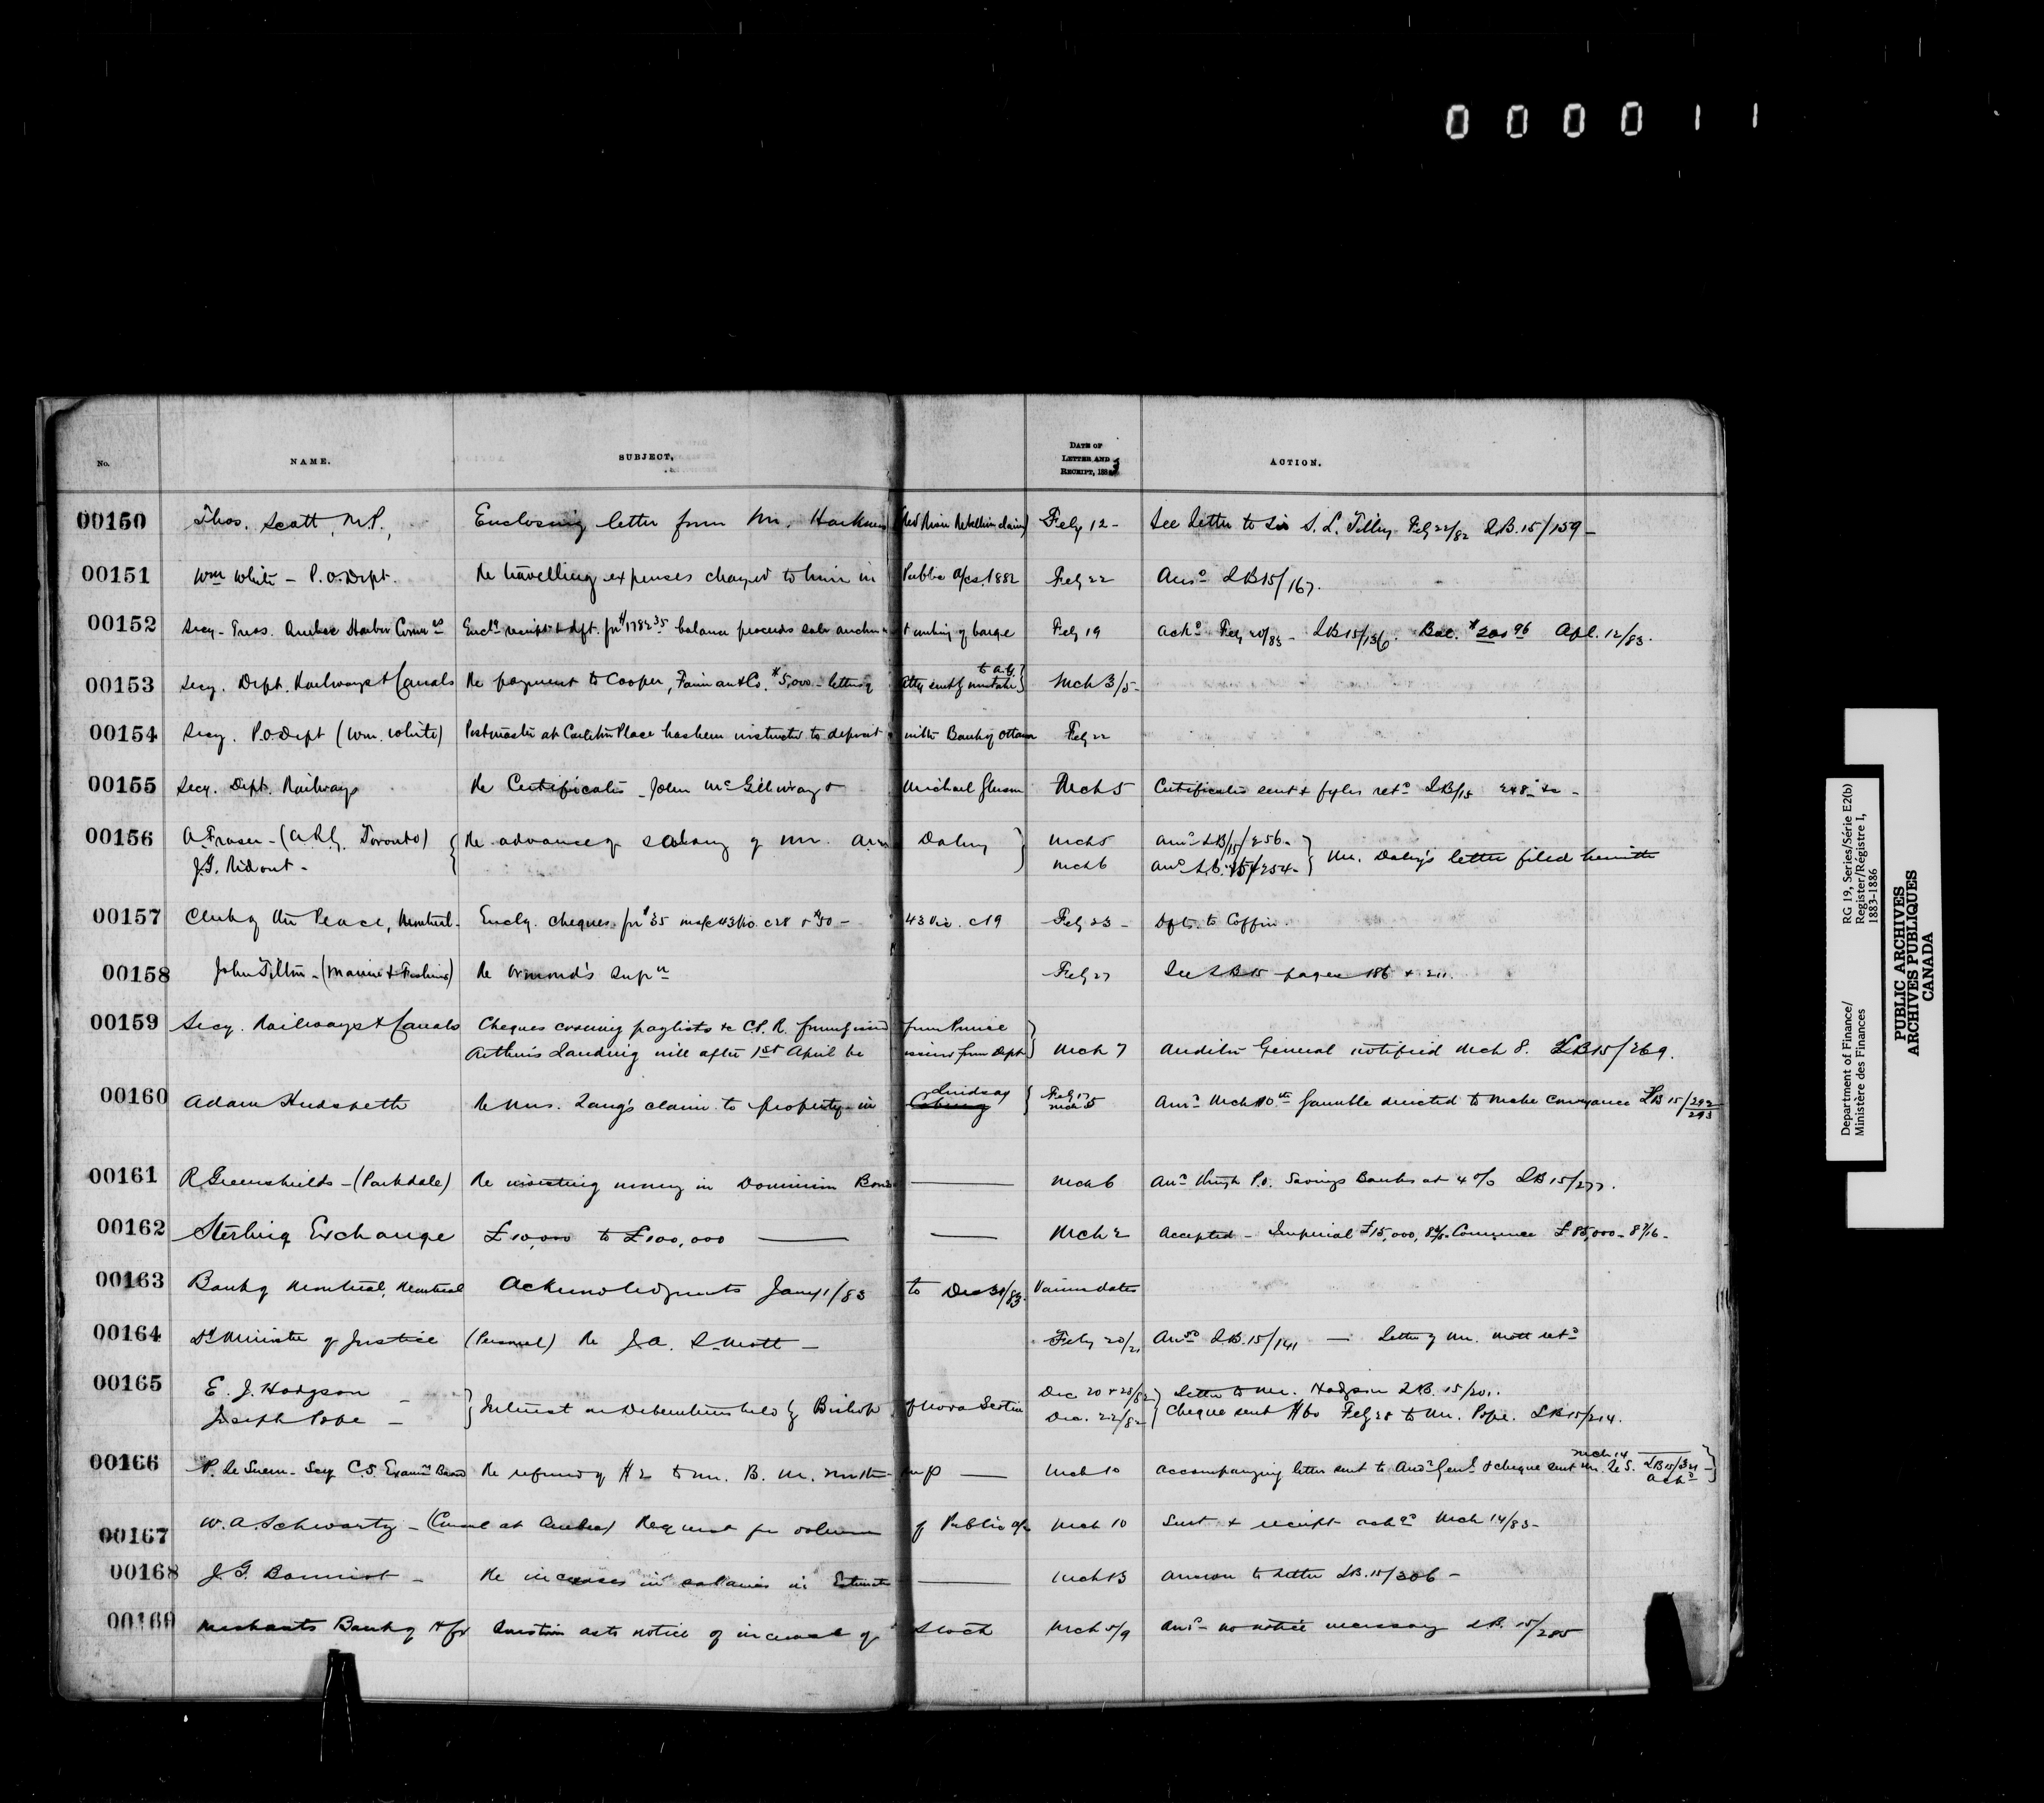 000011
No. NAME. SUBJECT, DATE OF LETTER AND RECEIPT, 1883 ACTION.
00150 Thos. Scott, M.P., Enclosing letter from Mr. Harkness (Red River Rebellion claim) Feby 12 - See Letter to Sir S. L. Tilley Feby 22/82 L.B. 15/159 -
00151 Wm White - P.O. Dept. Re travelling expenses charged to him in Public a/cs. 1882 Feby 22 Ansd LB 15/167.
00152 Secy-Treas. Quebec Harbor Comrs Encl receipt & dft. for $1782 35 balance proceeds sale anchor of barge Feby 19 Ackd Feby 20/83 - LB 15/136. Bal. $200 96 Apl. 12/83.
to A.G.
00153 Secy. Dept. Railways & Canals Re payment to Cooper, Fairman & Co. $5,000 - letter of Atty sent by mistake } Mch 3/5 -
00154 Secy. P.O. Dept (Wm. White) Postmaster at Carleton Place has been instructed to deposit with Bank of Ottawa Feby 22
00155 Secy. Dept. Railways Re Certificates - John McGillivray & Michael Gleeson Mch 5 Certificates sent & fyles retd LB/15 248 &c -
00156 A. Fraser - (A.R.G. Toronto) { Re advance of salary of Mr. Daly } Mch 5 Ansd LB/15/256 -
J.G. Ridout - Mch 6 Ansd L.B. 15/254 - } Mr. Daly's letter filed herewith
00157 Clerk of the Peace, Montreal - Encly. cheques for $35 43 Vic. c 28 & $50 - 43 Vic. c 19 Feby 23 - Dfts. to Coffin.
00158 John Tilton - (Marine & Fisheries) Re Ormond's Supn Feby 27 See LB 15 pages 186 & 211.
00159 Secy. Railways & Canals Cheques covering paylists &c C.P.R. from Prince
Arthur's Landing will after 1st April be issued from Dept } Mch 7 Auditor General notified Mch 8. LB 15/269.
00160 Adam Hudspeth Re Mrs. Lang's claim to property in Lindsay { Feby 17 Mch 5 Ansd Mch 10th Gamble directed to make conveyance LB 15/292 293
00161 R Greenshields - (Parkdale) Re investing money in Dominion Bonds Mch 6 Ansd through P.O. Savings Banks at 4 % LB 15/277.
00162 Sterling Exchange £10,000 to £100,000 Mch 2 Accepted - Imperial £15,000, Commerce £85,000 - 8 7/16 -
00163 Bank of Montreal, Montreal Acknowledgments Jany 1/83 to Dec 31/83. Various dates
00164 Dy Minister of Justice (Personal) Re J.A. S. Mott - Feby 20/21 Ansd L.B. 15/141 - Letter of Mr. Mott retd
00165 E. J. Hodgson - Dec 20 & 28/82 } Letter to Mr. Hodgson LB. 15/201.
Joseph Pope - } Interest on Debentures held by Bishop of Nova Scotia Dec. 22/82 Cheque sent $60 Feby 28 to Mr. Pope. LB 15/214.
00166 P. Le Sueur - Secy C.S. Examrs Board Re refund of $2 to Mr. B. M. Mch 10 Accompanying letter sent to Audr Genl & cheque sent Mr. Le S. Mch 14 LB 15/321 Ackd
00167 W.A. Schwartz - (Consul at Quebec) Request for volume of Public a/cs Mch 10 Sent & receipt ackd Mch 14/83 -
00168 J.G. - Re increases in salaries in Estimates Mch 13 Answer to letter LB. 15/306 -
00169 Merchants Bank of Hfx Question as to notice of increase of Stock Mch 5/9 Ansd - no notice necessary LB. 15/285
Department of Finance/
Ministère des Finances
RG 19, Series/Série E2(b)
Register/Régistre I,
1883-1886
PUBLIC ARCHIVES
ARCHIVES PUBLIQUES
CANADA